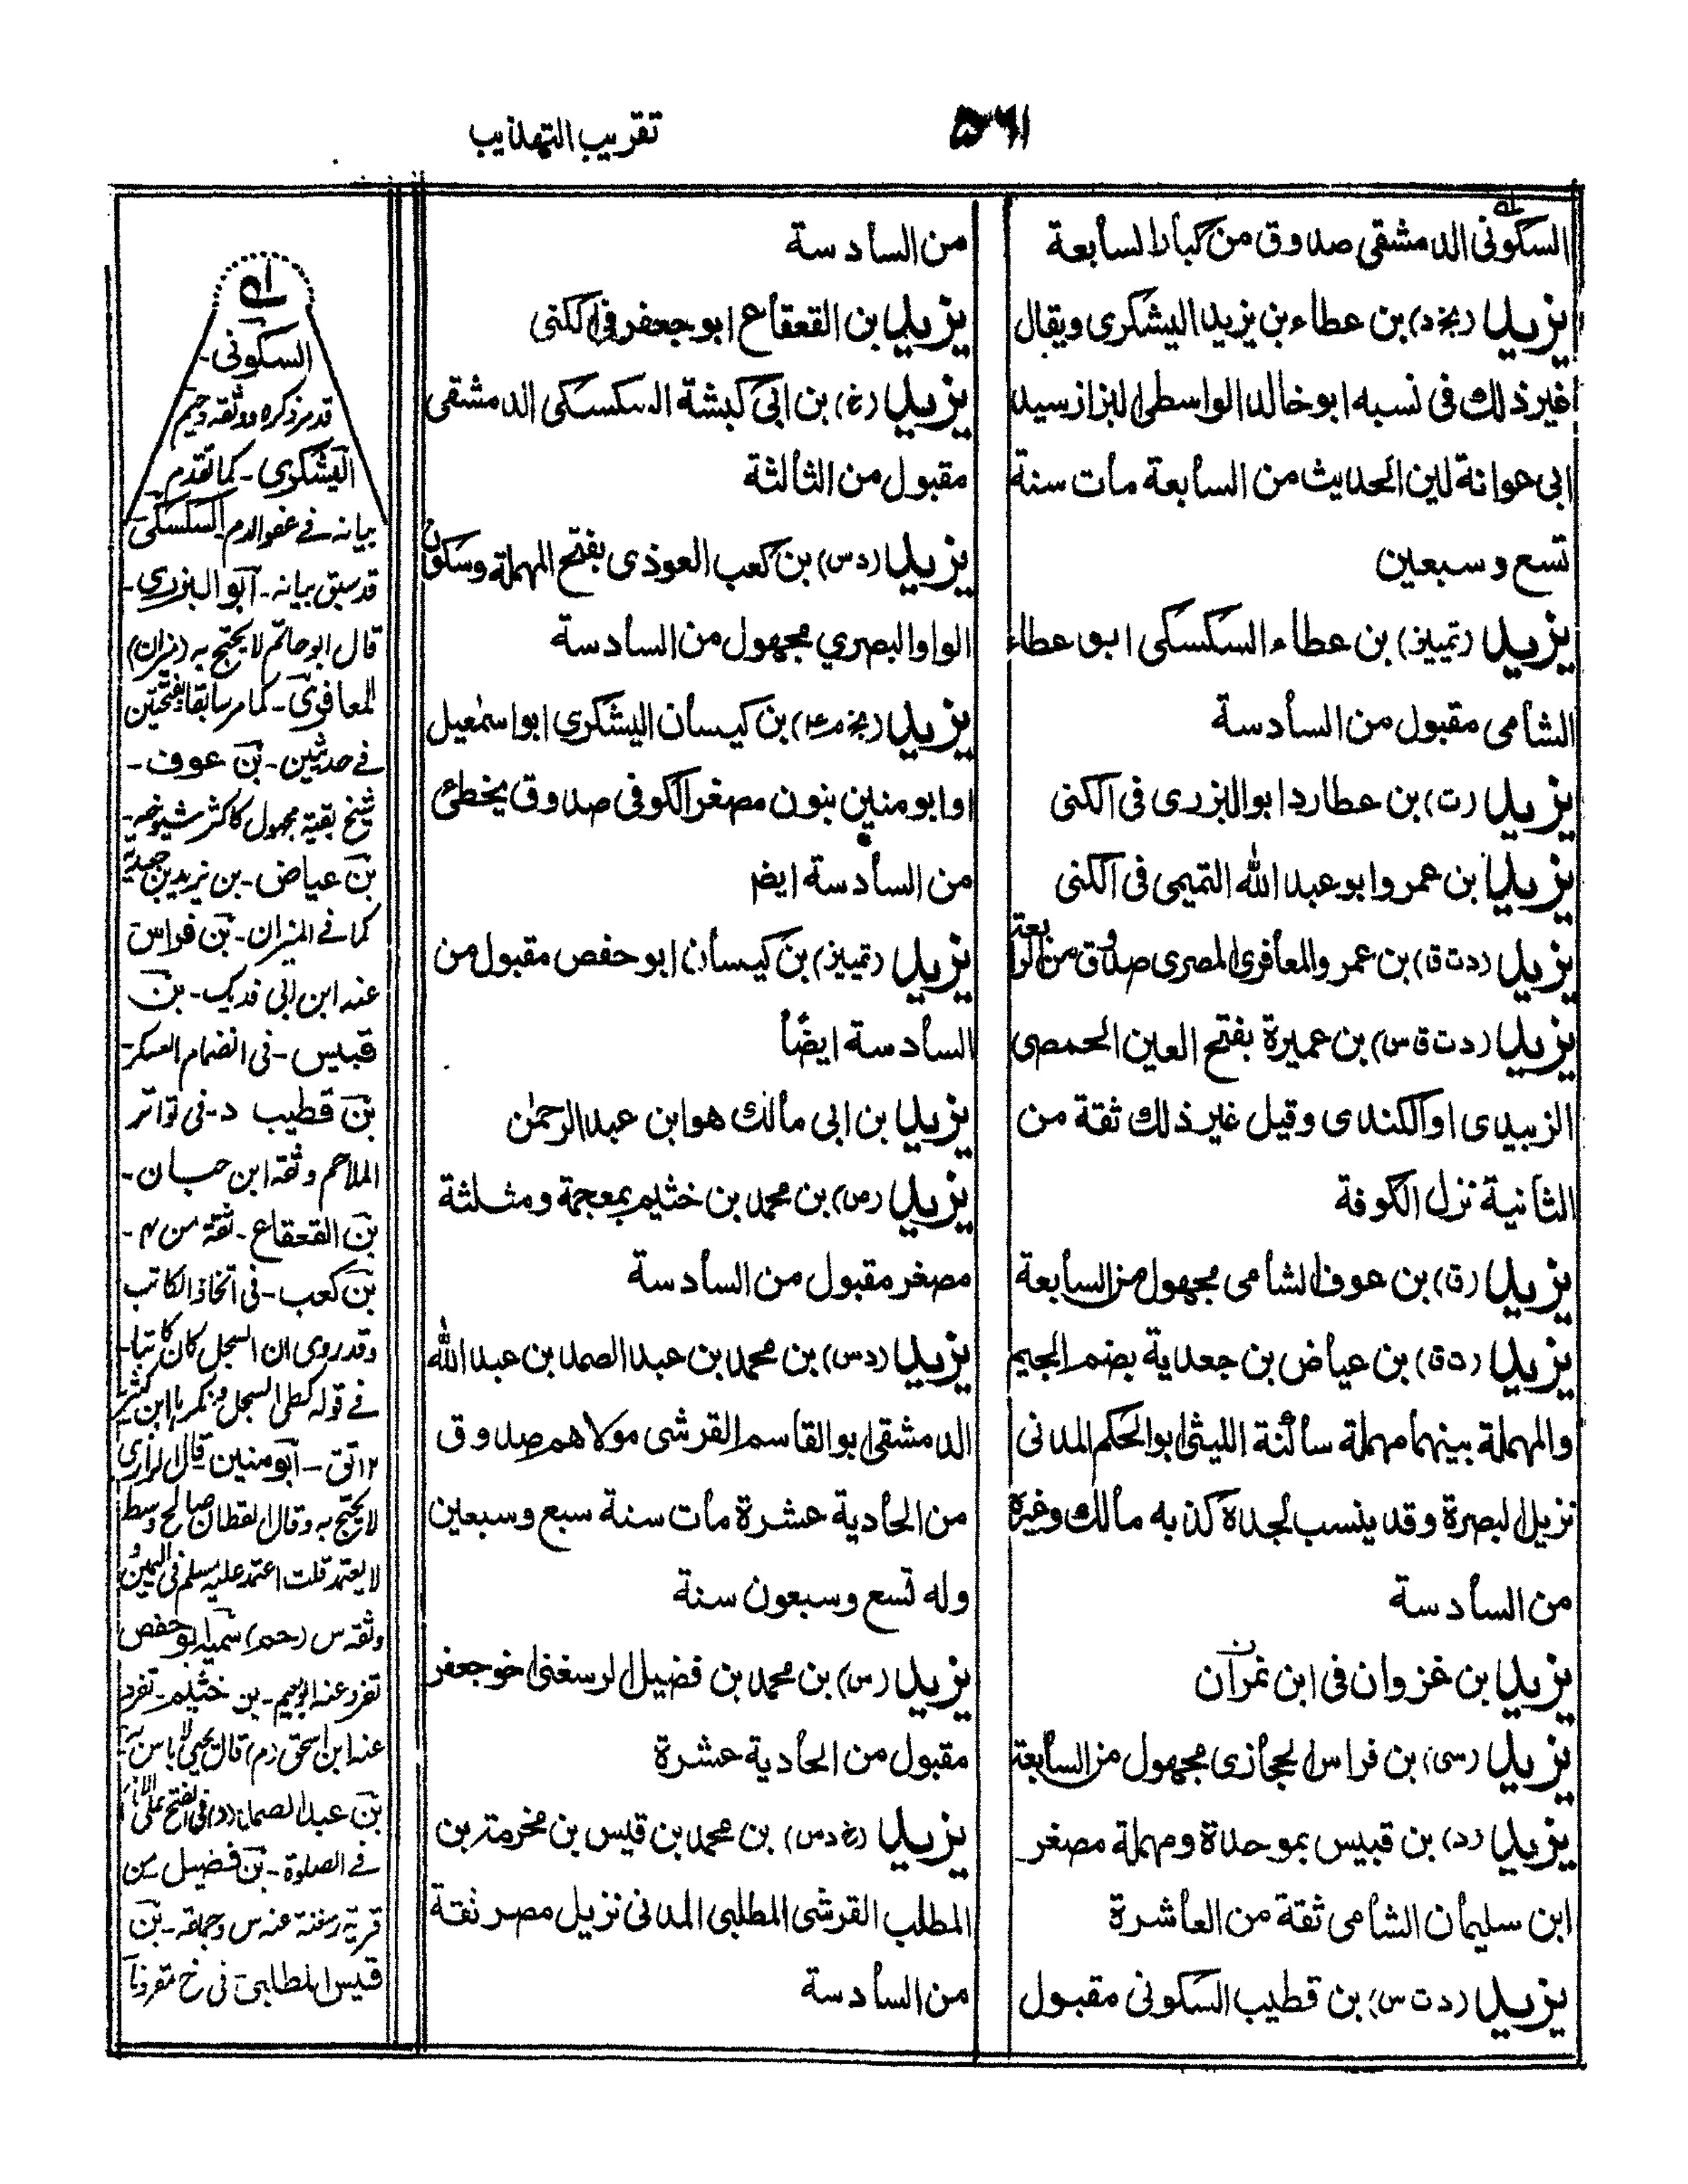 ۵۶۱
تقريب التهذيب
السكونى الدمشقى صدوق من كبار السابعة
يزيد (بخ د) بن عطاء بن يزيد اليشكرى ويقال
غير ذلك فى نسبه ابو خالد الواسطى البزاز سيد
ابى عوانة لين الحديث من السابعة مات سنة
تسع وسبعين
يزيد (تمييز) بن عطاء السكسكى ابو عطاء
الشامى مقبول من السادسة
يزيد (ت) بن عطارد ابو البزرى فى الكنى
يزيد بن عمرو ابو عبد الله التميمى فى الكنى
يزيد (د ت ق) بن عمرو المعافرى المصرى صدوق من الرابعة
يزيد (د ت ق س) بن عميرة بفتح العين الحمصى
الزبيدى او الكندى وقيل غير ذلك ثقة من
الثانية نزل الكوفة
يزيد (ق) بن عوف الشامى مجهول من السابعة
يزيد (ت ق) بن عياض بن جعدبة بضم الجيم
والمهملة بينهما مهملة ساكنة الليثى ابو الحكم المدنى
نزيل البصرة وقد ينسب لجده كذبه مالك وغيره
من السادسة
يزيد بن غزوان فى ابن نمران
يزيد (سى) بن فراس الحجازى مجهول من السابعة
يزيد (د) بن قبيس بموحدة ومهملة مصغر
ابن سليمان الشامى ثقة من العاشرة
يزيد (د ت س) بن قطيب السكونى مقبول
من السادسة
يزيد بن القعقاع ابو جعفر فى الكنى
يزيد (خ) بن ابى كبشة السكسكى الدمشقى
مقبول من الثالثة
يزيد (د س) بن كعب العوذى بفتح المهملة وسكون
الواو البصري مجهول من السادسة
يزيد (بخ م ع) بن كيسان اليشكرى ابو اسمعيل
او ابو منين بنون مصغر الكوفى صدوق يخطئ
من السادسة ايضا
يزيد (تمييز) بن كيسان ابو حفص مقبول من
السادسة ايضًا
يزيد بن ابى مالك هو ابن عبد الرحمن
يزيد (ص) بن محمد بن خثيم بمعجمة ومثلثة
مصغر مقبول من السادسة
يزيد (د س) بن محمد بن عبد الصمد بن عبد الله
الدمشقى ابو القاسم القرشى مولاهم صدوق
من الحادية عشرة مات سنة سبع وسبعين
وله تسع وسبعون سنة
يزيد (س) بن محمد بن فضيل الرسغنى اخو جعفر
مقبول من الحادية عشرة
يزيد (خ د س) بن محمد بن قيس بن مخرمة بن
المطلب القرشى المطلبى المدنى نزيل مصر ثقة
من السادسة
السكونى۔
قد مر ذكره ووثقه دحيم
اليشكرى - كما تقدم
بيانه فے عفو الدم السكسكى
قد سبق بيانه - ابو البزرى۔
قال ابو حاتم لا يحتج به (ميزان)
المعافرى - كما مر سابقا بفتحتين
فے حديثين - بن عوف۔
شيخ بقية مجهول كاكثر شيوخه۔
بن عياض - بن يزيد بن جعدبة
كما فے الميزان - بن فراس
عنه ابن ابى فديك - بن
قبيس - فى انضمام العسكر
بن قطيب د - فى تواتر
الملاحم وثقه ابن حبان۔
بن القعقاع - ثقة من ۴۔
بن كعب - فى اتخاذ الكاتب
وقد روى ان السجل كان كاتبا۔
فے قوله كطى السجل
۱۲ تق - ابو منين قال الرازى
لا يحتج به وقال القطان صالح وسط
لا يعتمد قلت اعتمد عليه مسلم فى
وثقه س (حم) سميه ابو حفص
تفرد عنه - بن خثيم - تفرد
عنه ابن اسحق (م) قال يحيى لا باس به۔
بن عبد الصمد (د) فى الفتح على الامام
فے الصلوة - بن فضيل من
قرية رسغنة عنه س وجماعة - بن
قيس المطلبى فى خ مقرونا